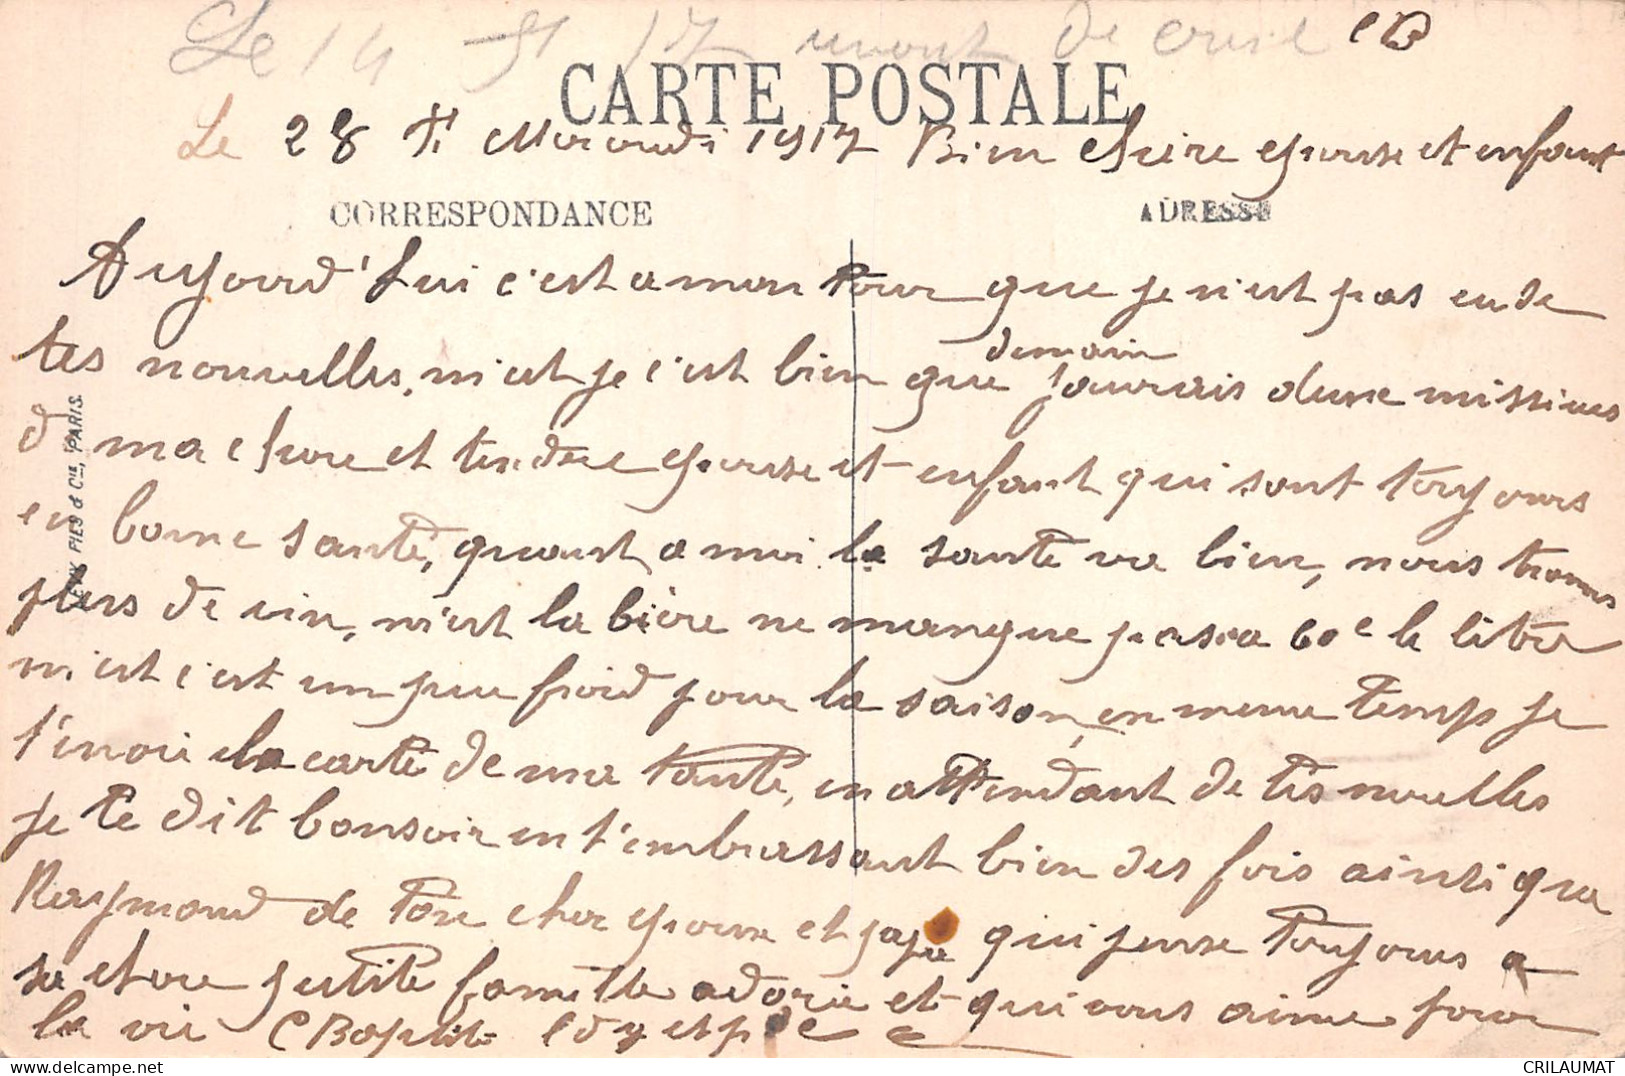 Le 14 17 mont de
CARTE POSTALE
Le 28 1917 Bien chère epouse et enfant
CORRESPONDANCE
ADRESSE
Aujourd'hui c'est a mon tour que je n'est pas eu de
tes nouvelles, m'est je c'est bien que demain j'aurais d'une missives
de ma chere et tendre epouse et enfant qui sont toujours
en bonne santé, quant a moi la sante va bien, nous
plus de vin, m'est la bière ne manque pas a 60c le litre
m'est c'est un peu froid pour la saison, en meme temps je
t'envoie la carte de ma tante, en attendant de tes nouvelles
je te dit bonsoir en t'embrassant bien des fois ainsi que
Raymond de ton cher epoux et papa qui pense toujours a
sa chere petite famille adorée et qui vous aime pour
la vie
PILES & Cie, PARIS.
CRILAUMAT